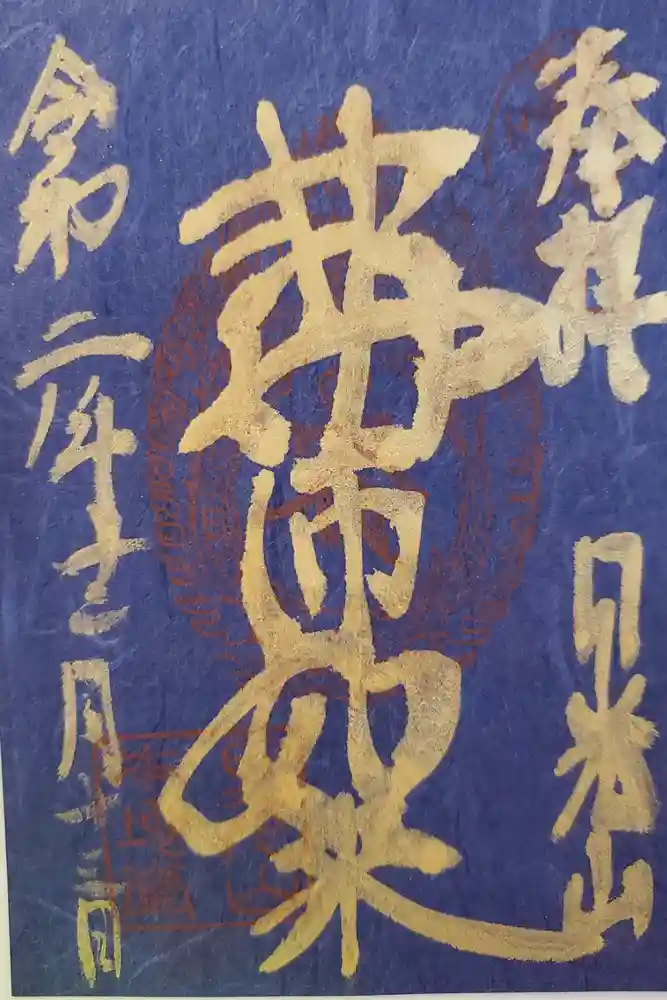 奉拝
日光山
薬師如来
令和二年十二月十三日